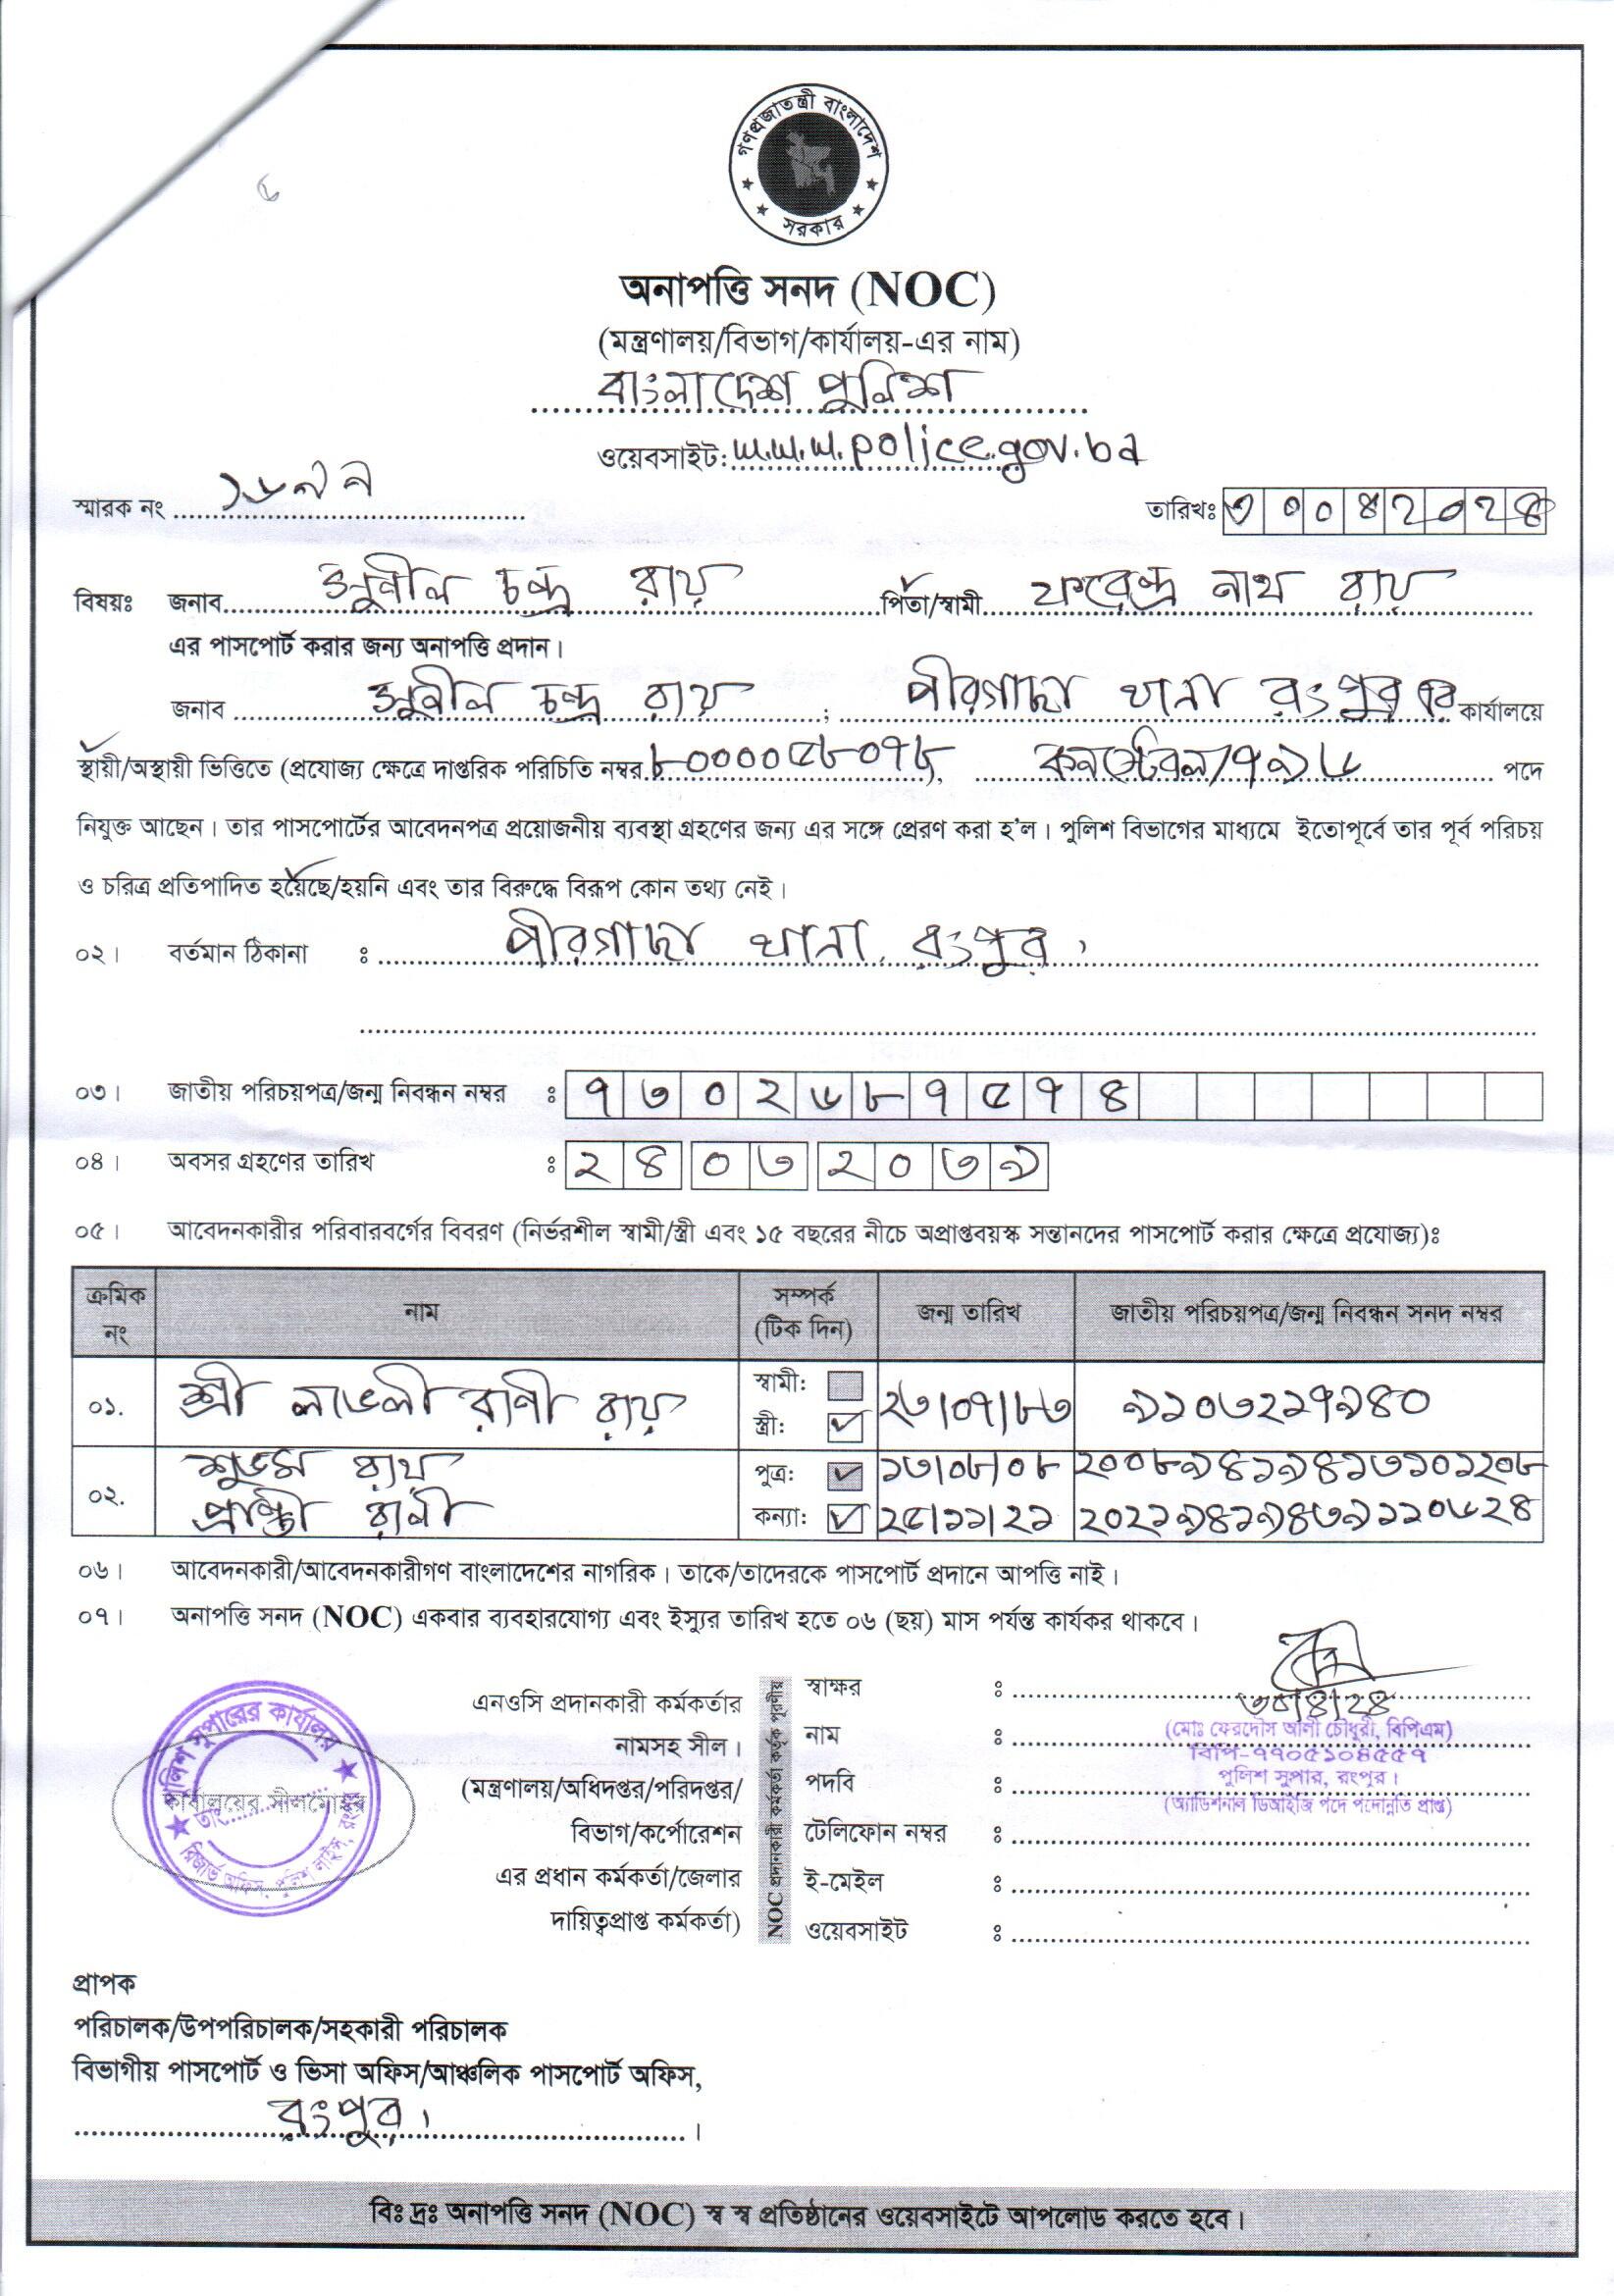 গণপ্রজাতন্ত্রী বাংলাদেশ
সরকার
অনাপত্তি সনদ (NOC)
(মন্ত্রণালয়/বিভাগ/কার্যালয়-এর নাম)
বাংলাদেশ পুলিশ
ওয়েবসাইট: w.w.w.police.gov.bd
স্মারক নং
তারিখঃ ৩০০৪২০২৪
বিষয়ঃ জনাব সুনীল চন্দ্র রায় পিতা/স্বামী নাথ রায়
এর পাসপোর্ট করার জন্য অনাপত্তি প্রদান।
জনাব সুনীল চন্দ্র রায় ; পীরগাছা থানা রংপুর এর কার্যালয়ে
স্থায়ী/অস্থায়ী ভিত্তিতে (প্রযোজ্য ক্ষেত্রে দাপ্তরিক পরিচিতি নম্বর ), কনস্টেবল/৭৯৬ পদে
নিযুক্ত আছেন। তার পাসপোর্টের আবেদনপত্র প্রয়োজনীয় ব্যবস্থা গ্রহণের জন্য এর সঙ্গে প্রেরণ করা হ'ল। পুলিশ বিভাগের মাধ্যমে ইতোপূর্বে তার পূর্ব পরিচয়
ও চরিত্র প্রতিপাদিত হয়েছে/হয়নি এবং তার বিরুদ্ধে বিরূপ কোন তথ্য নেই।
০২। বর্তমান ঠিকানা ঃ পীরগাছা থানা, রংপুর।
০৩। জাতীয় পরিচয়পত্র/জন্ম নিবন্ধন নম্বর ঃ ৭৩০২৬৮৭৫৭৪
০৪। অবসর গ্রহণের তারিখ ঃ ২৪০৩২০৩৯
০৫। আবেদনকারীর পরিবারবর্গের বিবরণ (নির্ভরশীল স্বামী/স্ত্রী এবং ১৫ বছরের নীচে অপ্রাপ্তবয়স্ক সন্তানদের পাসপোর্ট করার ক্ষেত্রে প্রযোজ্য)ঃ
ক্রমিক নং নাম সম্পর্ক (টিক দিন) জন্ম তারিখ জাতীয় পরিচয়পত্র/জন্ম নিবন্ধন সনদ নম্বর
স্বামী:
০১. শ্রী লাভলী রাণী রায় স্ত্রী: ২৩/০৭/৮৩ ৯১০৩২১৭৯৪০
শুভম রায় পুত্র: ১৩/০৮/০৮ ২০০৮৯৪১৯৪১৩১০১২০৮
০২. রানী কন্যা: ২৫/১১/২১ ২০২১৯৪১৯৪৩৯১১০৬২৪
০৬। আবেদনকারী/আবেদনকারীগণ বাংলাদেশের নাগরিক। তাকে/তাদেরকে পাসপোর্ট প্রদানে আপত্তি নাই।
০৭। অনাপত্তি সনদ (NOC) একবার ব্যবহারযোগ্য এবং ইস্যুর তারিখ হতে ০৬ (ছয়) মাস পর্যন্ত কার্যকর থাকবে।
পুলিশ সুপারের কার্যালয়
কার্যালয়ের সীলমোহর
তাং
রিজার্ভ অফিস, পুলিশ লাইন্স, রংপুর
এনওসি প্রদানকারী কর্মকর্তার
নামসহ সীল।
(মন্ত্রণালয়/অধিদপ্তর/পরিদপ্তর/
বিভাগ/কর্পোরেশন
এর প্রধান কর্মকর্তা/জেলার
দায়িত্বপ্রাপ্ত কর্মকর্তা)
NOC প্রদানকারী কর্মকর্তা কর্তৃক পূরণীয়
স্বাক্ষর ঃ ৩০/৪/২৪
নাম ঃ (মোঃ ফেরদৌস আলী চৌধুরী, বিপিএম)
বিপি-৭৭০৫১০৪৫৫৭
পদবি ঃ পুলিশ সুপার, রংপুর।
(অ্যাডিশনাল ডিআইজি পদে পদোন্নতি প্রাপ্ত)
টেলিফোন নম্বর ঃ
ই-মেইল ঃ
ওয়েবসাইট ঃ
প্রাপক
পরিচালক/উপপরিচালক/সহকারী পরিচালক
বিভাগীয় পাসপোর্ট ও ভিসা অফিস/আঞ্চলিক পাসপোর্ট অফিস,
রংপুর।
বিঃ দ্রঃ অনাপত্তি সনদ (NOC) স্ব স্ব প্রতিষ্ঠানের ওয়েবসাইটে আপলোড করতে হবে।